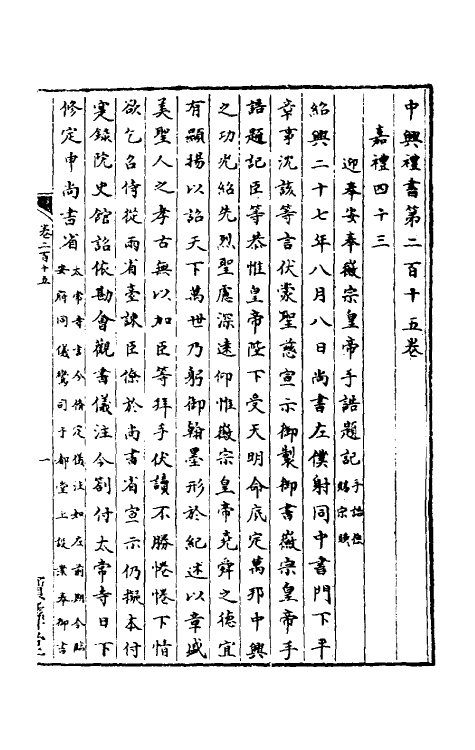 中興禮書第二百十五卷
嘉禮四十三
迎奉安奉徽宗皇帝手詔題記
紹興二十七年八月八日尚書左僕射同中書門下平
章事沈該等言伏蒙聖慈宣示御製御書徽宗皇帝手
詔題記臣等恭惟皇帝陛下受天明命底定萬邦中興
之功光紹先烈聖慮深遠仰惟徽宗皇帝堯舜之德宜
有顯揚以詔天下萬世乃躬御翰墨形於紀述以章盛
美聖人之孝古無以加臣等拜手伏讀不勝惓惓下情
欲乞召侍從兩省臺諫臣僚於尚書省宣示仍擬本付
寔錄院史館詔依勘會觀書儀注今劄付太常寺日下
修定申尚書省太常寺言今修定儀注如左前期令臨
安府同儀鸞司于都堂上設案奉御書
卷二百十五
一